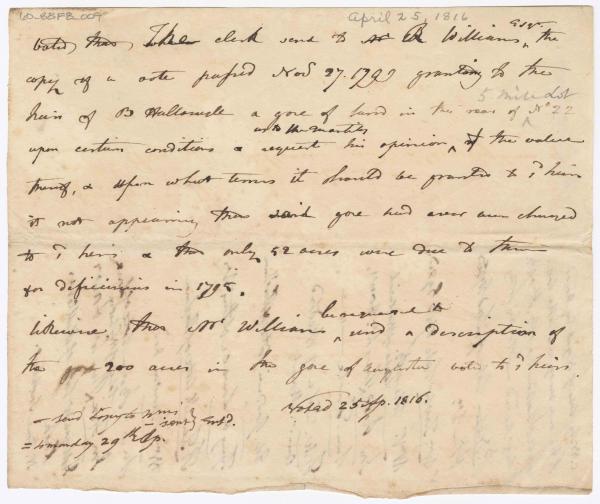 April 25, 1816
Voted, that The clerk send to Mr R Williams, Esqr. the
copy of a vote passed Nov 27. 1799 granting to the
heirs of B Hallowell a gore of land in the rear of No 22
5 mile Lot
upon certain conditions & request his opinion of the value
thereof, & upon what terms it should be granted to sd heirs
it not appearing that said gore had ever been charged
to sd heirs & that only 52 acres were due to them
for deficiencies in 1798.
be requested to
Likewise that Mr Williams send a description of
the 200 acres in the gore of Augusta voted to sd heirs.
Voted 25 Ap. 1816.
- send Copy to
= Monday 29th Ap.